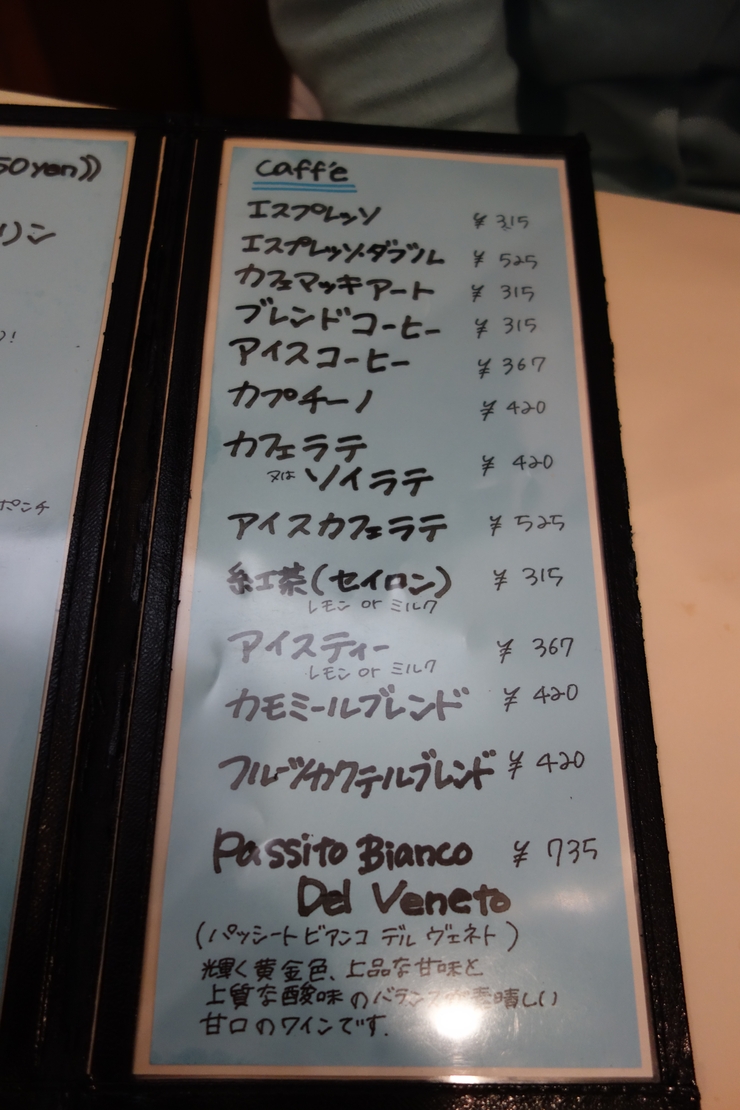 50yen))
リン
!
ポンチ
Caff'e
エスプレッソ ¥ 315
エスプレッソ・ダブル ¥ 525
カフェマッキアート ¥ 315
ブレンドコーヒー ¥ 315
アイスコーヒー ¥ 367
カプチーノ ¥ 420
カフェラテ
又は ソイラテ ¥ 420
アイスカフェラテ ¥ 525
紅茶(セイロン) ¥ 315
レモン or ミルク
アイスティー ¥ 367
レモン or ミルク
カモミールブレンド ¥ 420
フルーツカクテルブレンド ¥ 420
Passito Bianco ¥ 735
Del Veneto
(パッシート ビアンコ デル ヴェネト)
輝く黄金色、上品な甘味と
上質な酸味のバランスが素晴しい
甘口のワインです.